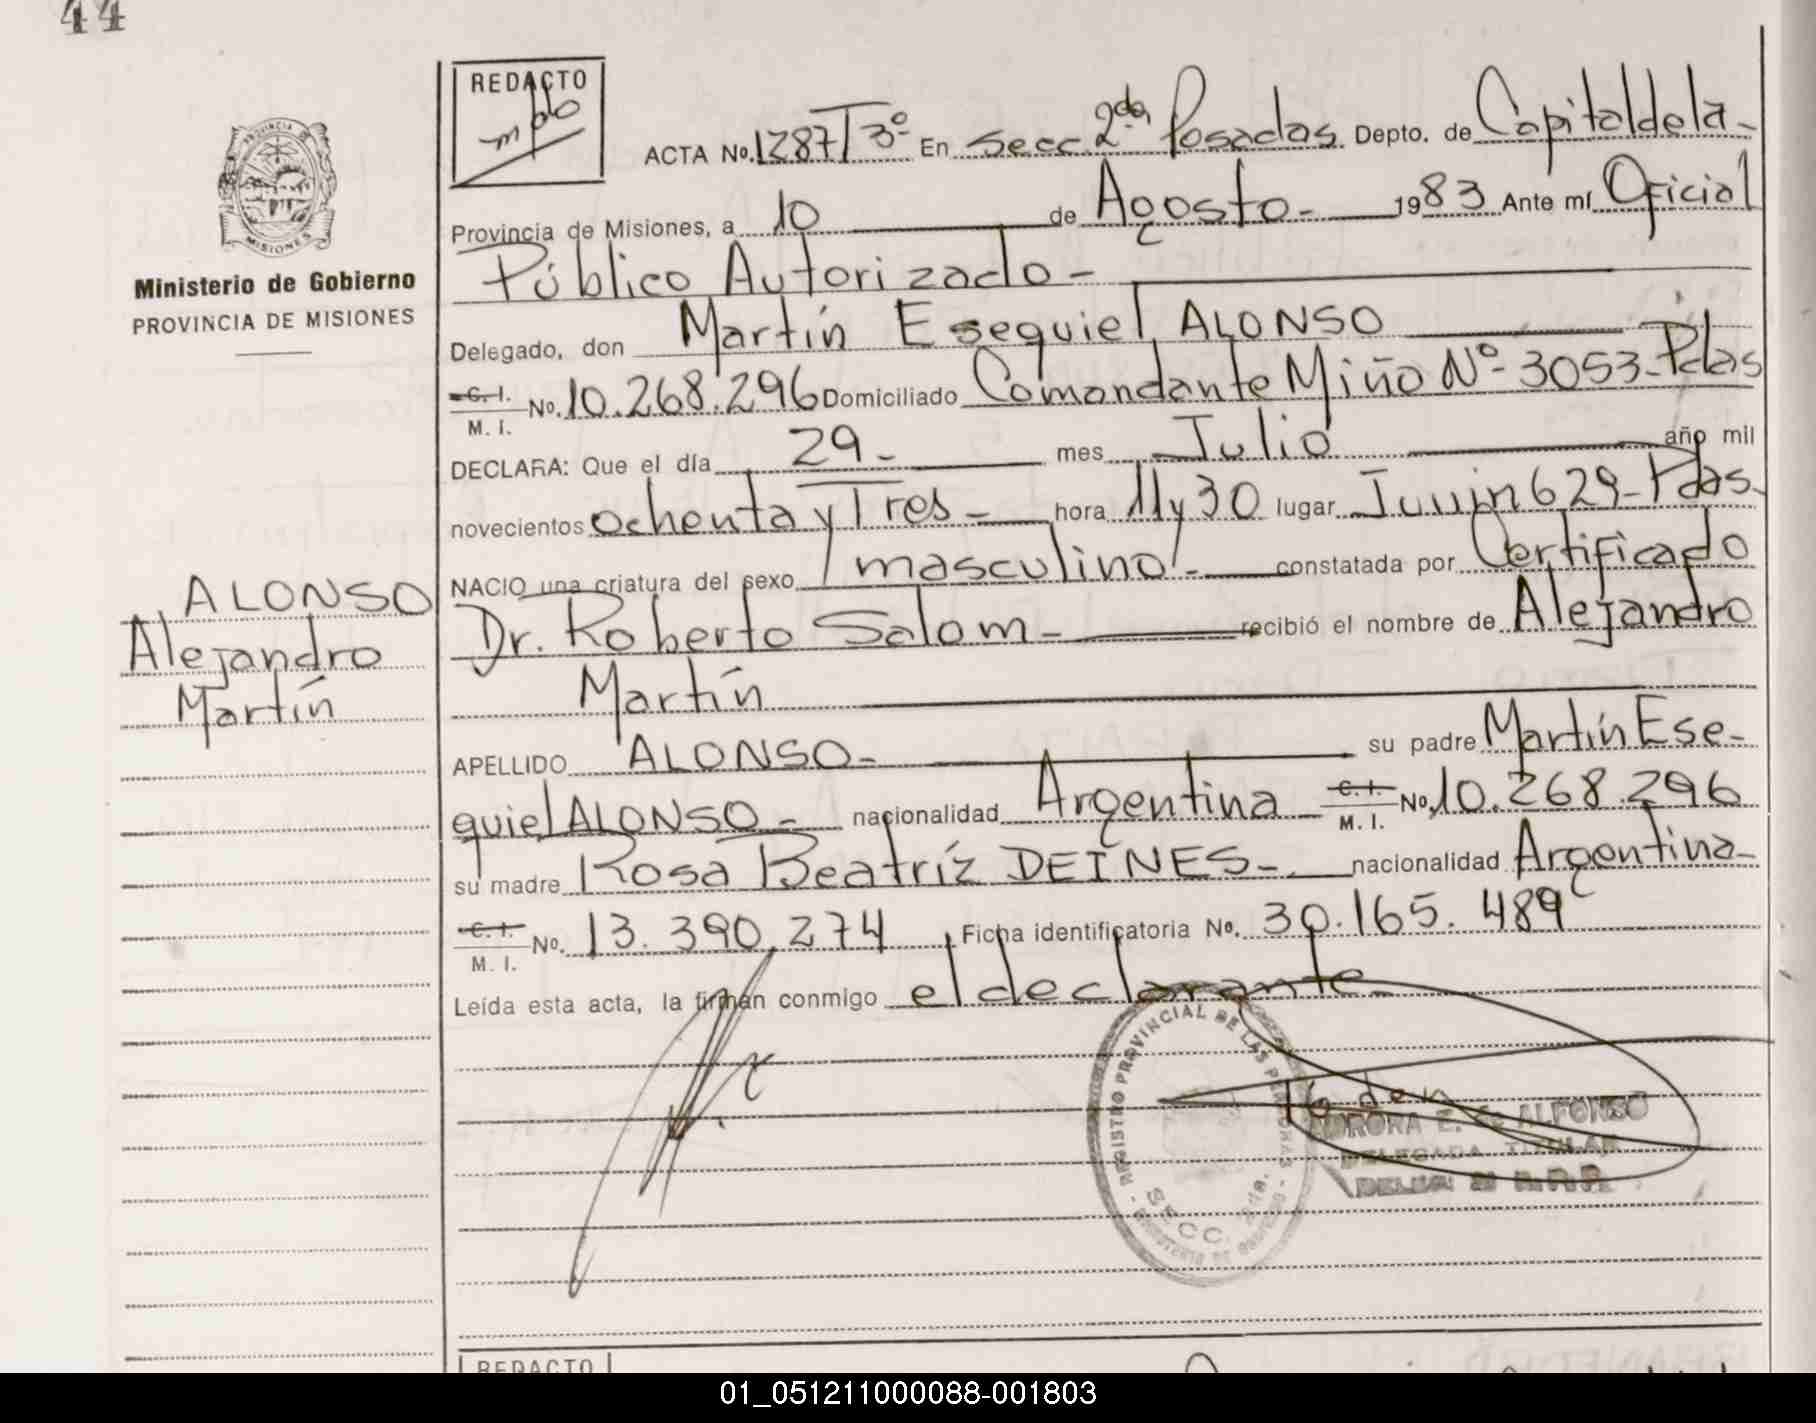 44
REDACTO
ACTA No. 1287 T 3º En Secc 2da Posadas Depto. de Capital de la
Provincia de Misiones, a 10 de Agosto 1983 Ante mí Oficial
Público Autorizado
Delegado, don Martín Esequiel ALONSO
C. I. No. 10.268.296 Domiciliado Comandante Miño Nº 3053 - Pdas
M. I.
DECLARA: Que el día 29 mes Julio año mil
novecientos ochenta y Tres hora 11 y 30 lugar Junin 629 - Pdas.
NACIO una criatura del sexo masculino constatada por Certificado
Dr. Roberto Salom recibió el nombre de Alejandro
Martín
APELLIDO ALONSO su padre Martín Ese-
quiel ALONSO nacionalidad Argentina C. I. No. 10.268.296
M. I.
su madre Rosa Beatríz DEINES nacionalidad Argentina
C. I. No. 13.390.274 Ficha identificatoria No. 30.165.489
M. I.
Leída esta acta, la firman conmigo el declarante
PROVINCIA DE
MISIONES
Ministerio de Gobierno
PROVINCIA DE MISIONES
ALONSO
Alejandro
Martín
REGISTRO PROVINCIAL DE LAS PERSONAS
SECC. 2da.
E. de ALFONSO
DELEGADA TITULAR
REDACTO
01_051211000088-001803